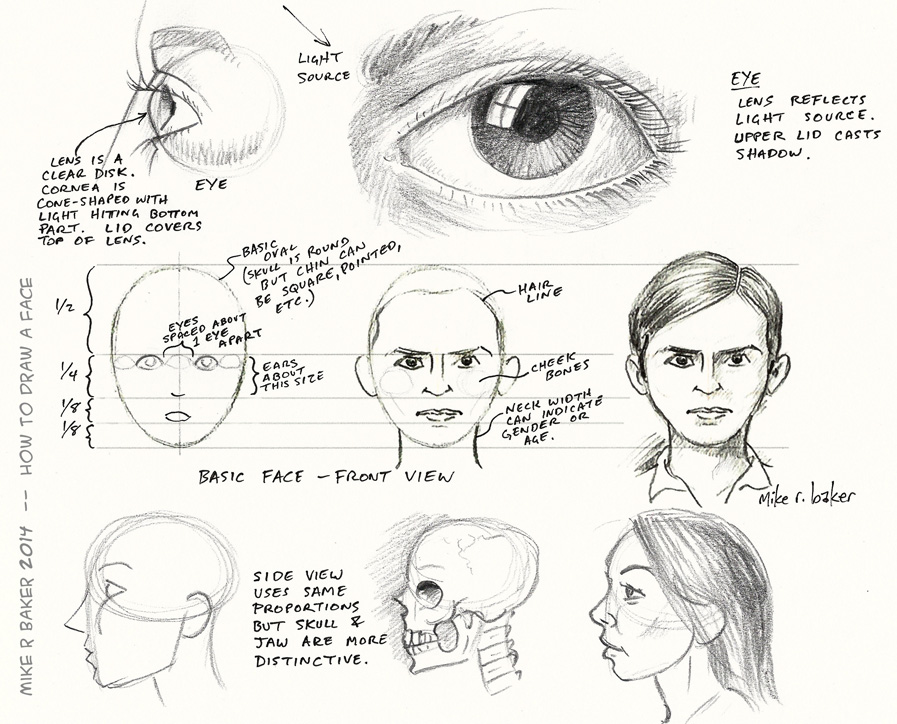 LIGHT
SOURCE
EYE
LENS REFLECTS
LIGHT SOURCE.
UPPER LID CASTS
SHADOW.
LENS IS A
CLEAR DISK.
CORNEA IS
CONE-SHAPED WITH
LIGHT HITING BOTTOM
PART. LID COVERS
TOP OF LENS.
EYE
BASIC
OVAL
(SKULL IS ROUND
BUT CHIN CAN
BE SQUARE, POINTED,
ETC.)
1/2
1/4
1/8
1/8
EYES
SPACED ABOUT
1 EYE
APART
EARS
ABOUT
THIS SIZE
HAIR
LINE
CHEEK
BONES
NECK WIDTH
CAN INDICATE
GENDER OR
AGE.
BASIC FACE - FRONT VIEW
Mike r. baker
SIDE VIEW
USES SAME
PROPORTIONS
BUT SKULL &
JAW ARE MORE
DISTINCTIVE.
MIKE R BAKER 2014 -- HOW TO DRAW A FACE